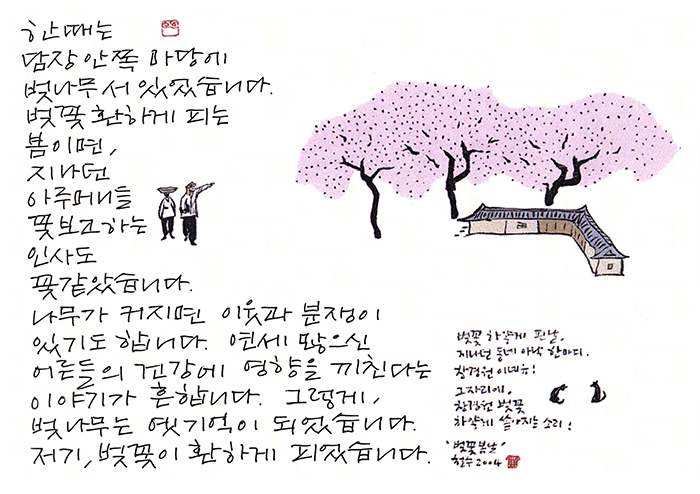 한때는
담장 안쪽 마당에
벚나무 서 있었습니다.
벚꽃 환하게 피는
봄이면,
지나던
아주머니들
꽃보고 하는
인사도
꽃같았습니다.
나무가 커지면 이웃과 분쟁이
있기도 합니다. 연세 많으신
어른들의 건강에 영향을 끼친다는
이야기가 흔합니다. 그렇게,
벚나무는 옛기억이 되었습니다.
저기, 벚꽃이 환하게 피었습니다.
벚꽃 하얗게 핀 날,
지나던 동네 아낙 한마디.
창경원이네유!
그 자리에,
창경원 벚꽃
하얗게 쏟아지는 소리!
'벚꽃봄날'
철수 2004